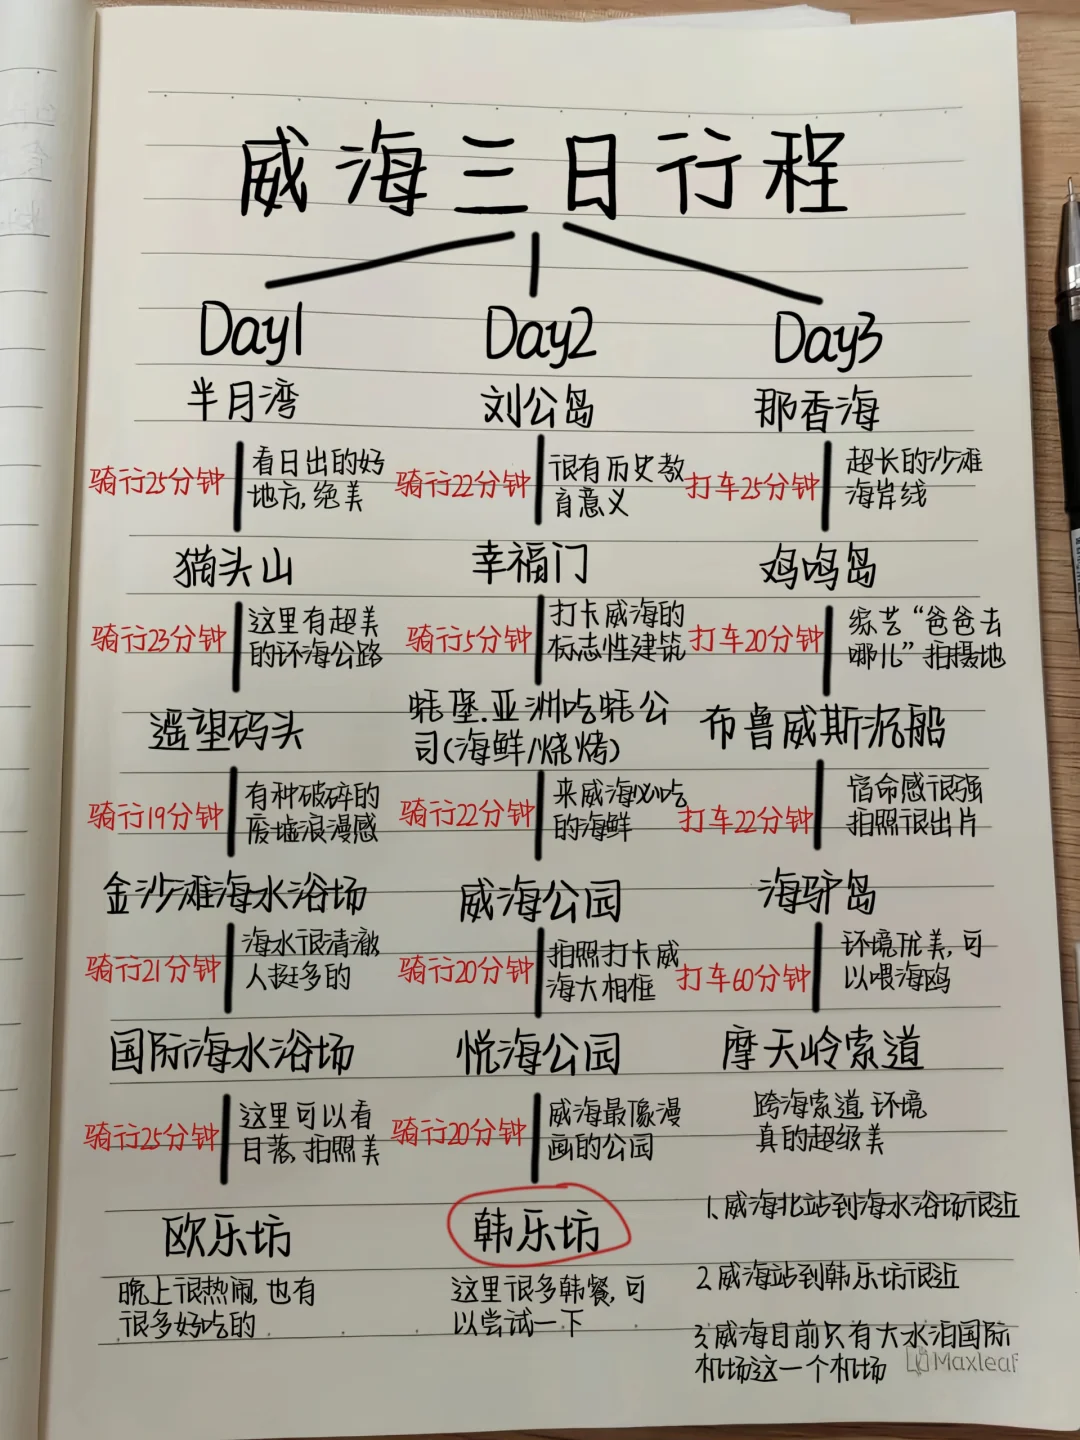 威海三日行程
Day1
半月湾
骑行25分钟
看日出的好
地方,绝美
猫头山
骑行23分钟
这里有超美
的环海公路
遥望码头
骑行19分钟
有种破碎的
废墟浪漫感
金沙滩海水浴场
骑行21分钟
海水很清澈
人挺多的
国际海水浴场
骑行25分钟
这里可以看
日落,拍照美
欧乐坊
晚上很热闹,也有
很多好吃的
Day2
刘公岛
骑行22分钟
很有历史教
育意义
幸福门
骑行5分钟
打卡威海的
标志性建筑
蚝堡.亚洲吃蚝公
司(海鲜/烧烤)
骑行22分钟
来威海必吃
的海鲜
威海公园
骑行20分钟
拍照打卡威
海大相框
悦海公园
骑行20分钟
威海最像漫
画的公园
韩乐坊
这里很多韩餐,可
以尝试一下
Day3
那香海
打车25分钟
超长的沙滩
海岸线
鸡鸣岛
打车20分钟
综艺“爸爸去
哪儿”拍摄地
布鲁威斯沉船
打车22分钟
宿命感很强
拍照很出片
海驴岛
打车60分钟
环境优美,可
以喂海鸥
摩天岭索道
跨海索道,环境
真的超级美
1、威海北站到海水浴场很近
2.威海站到韩乐坊很近
3.威海目前只有大水泊国际
机场这一个机场
Maxleaf